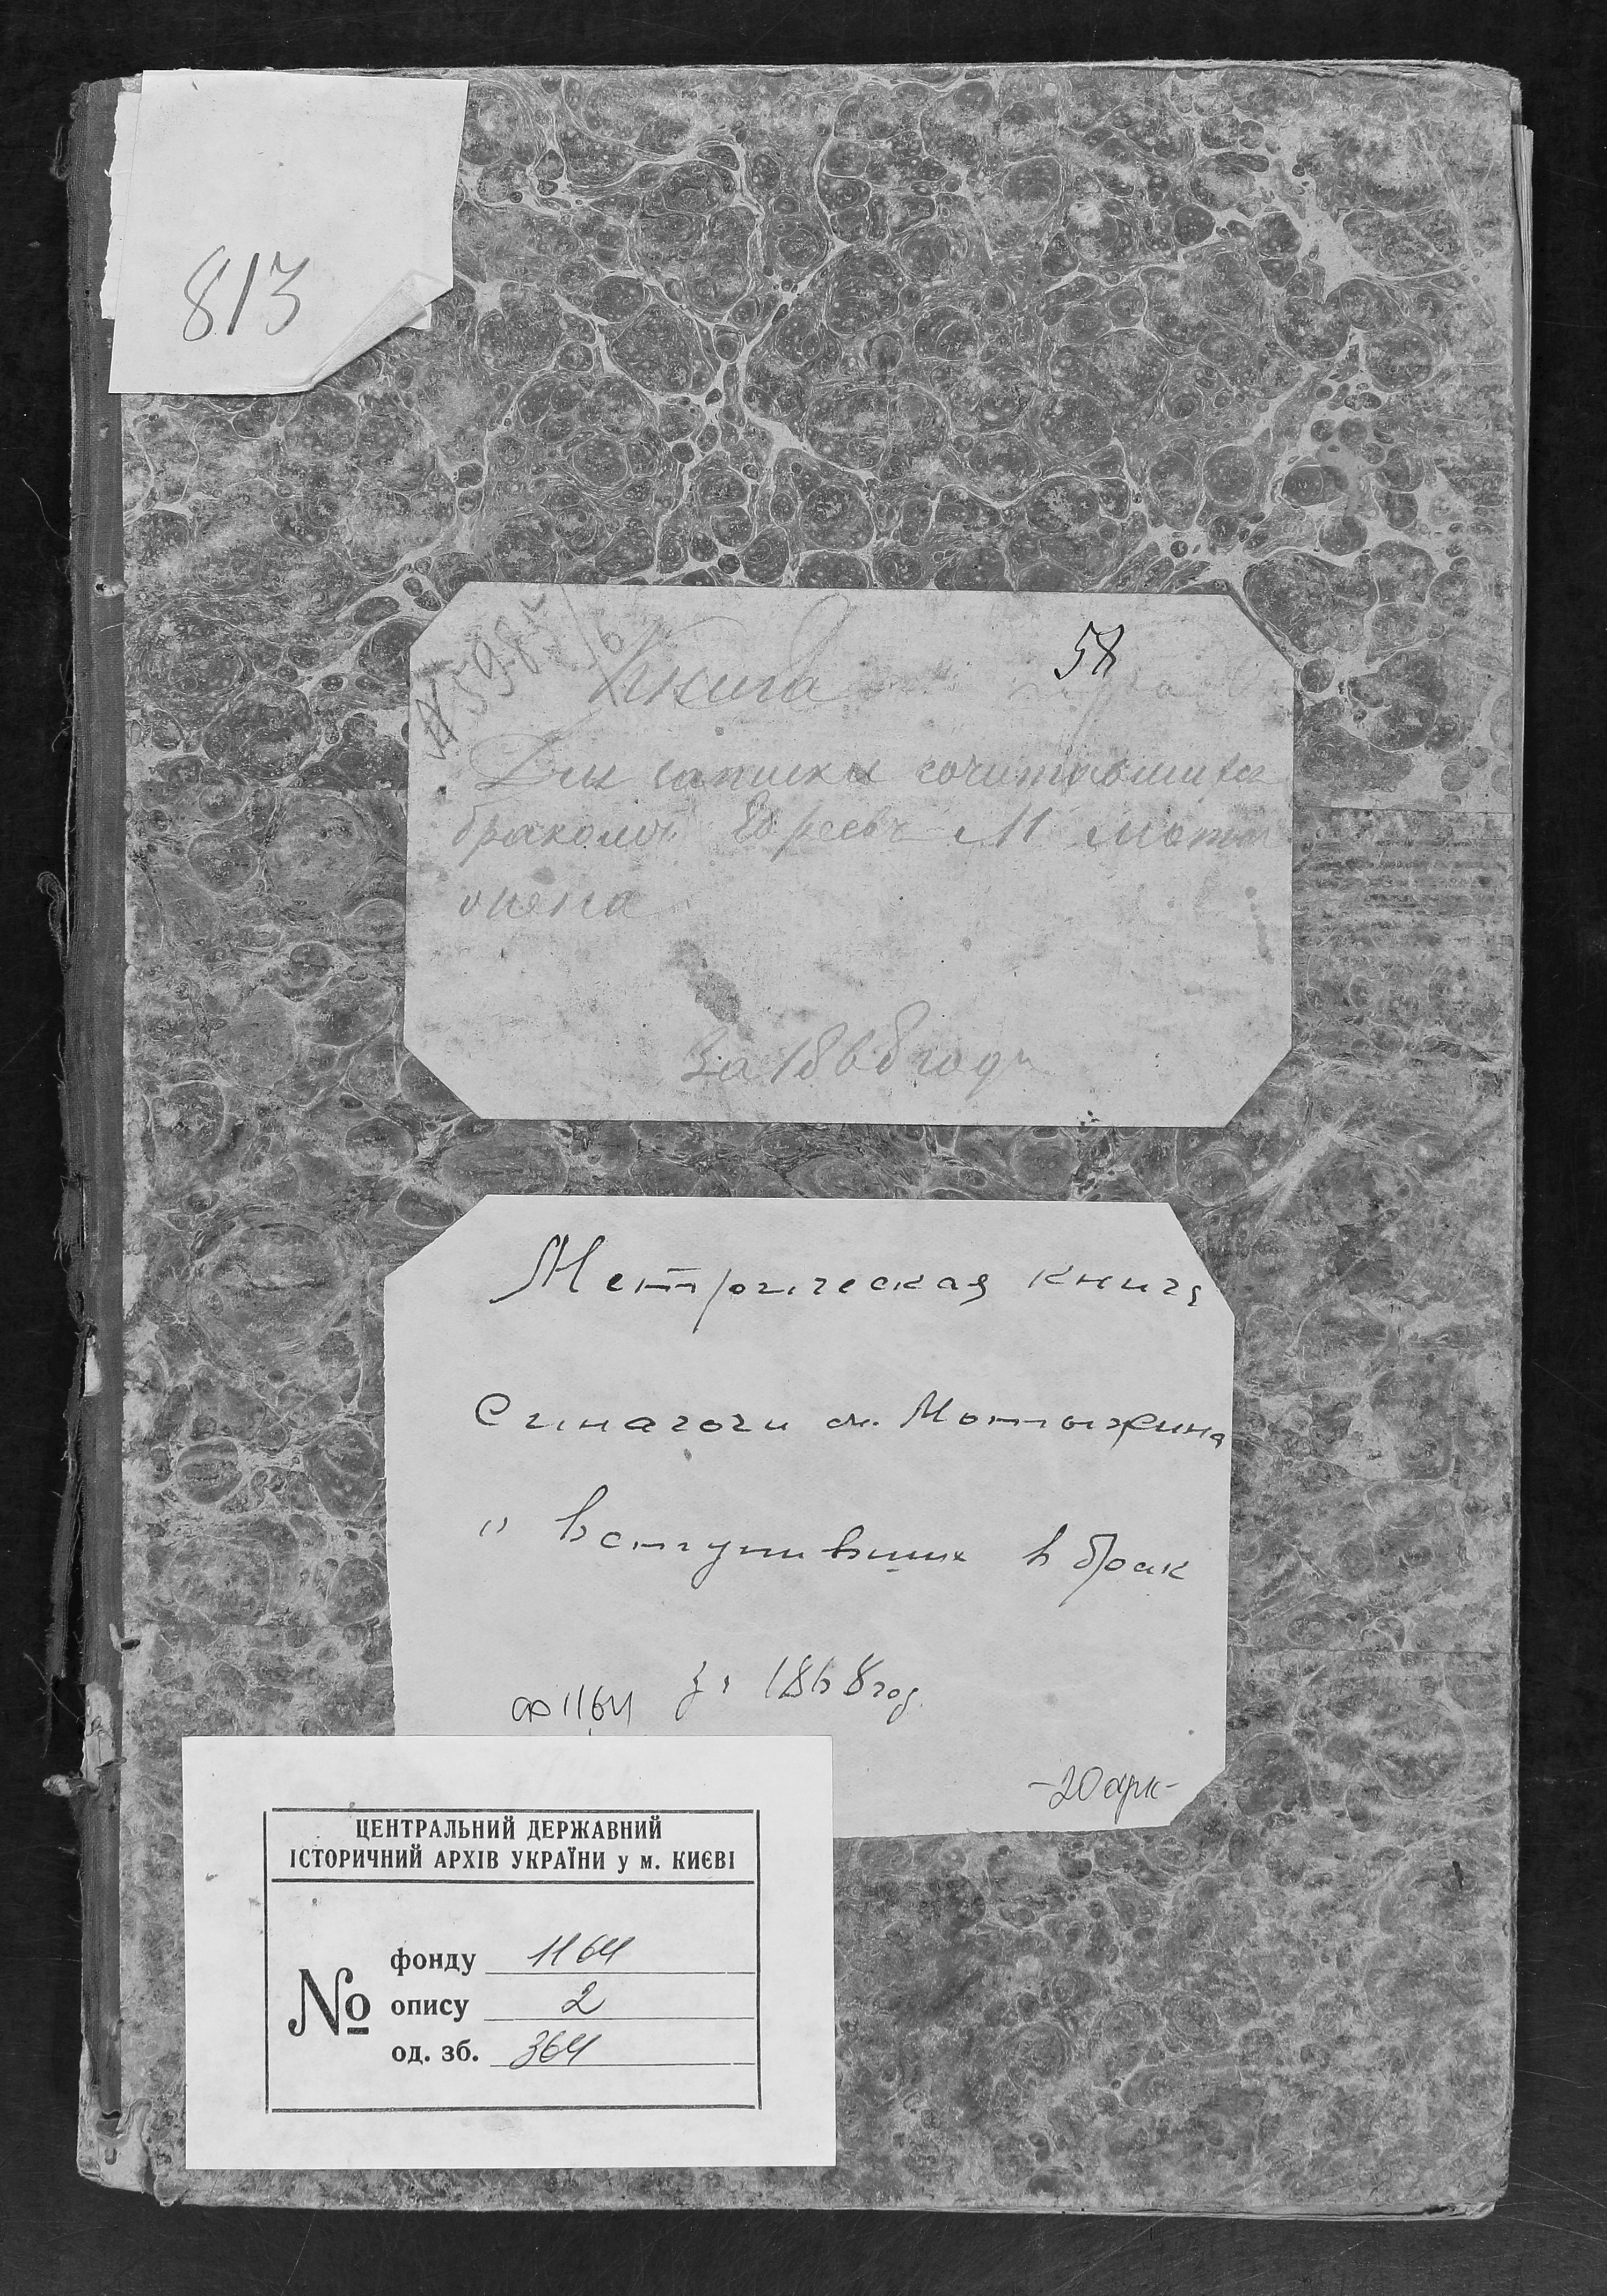 813
№ 5985/6
Книга
58
Для записки сочитавшихся
бракомъ Евреевъ М Моты
жина
За 1868 годъ
Метрическая книга
Синагоги м. Мотыжина
" Вступивших в брак
за 1868 год.
ф 1164
-20 арк-
ЦЕНТРАЛЬНИЙ ДЕРЖАВНИЙ
ІСТОРИЧНИЙ АРХІВ УКРАЇНИ у м. КИЄВІ
№
фонду 1164
опису 2
од. зб. 364